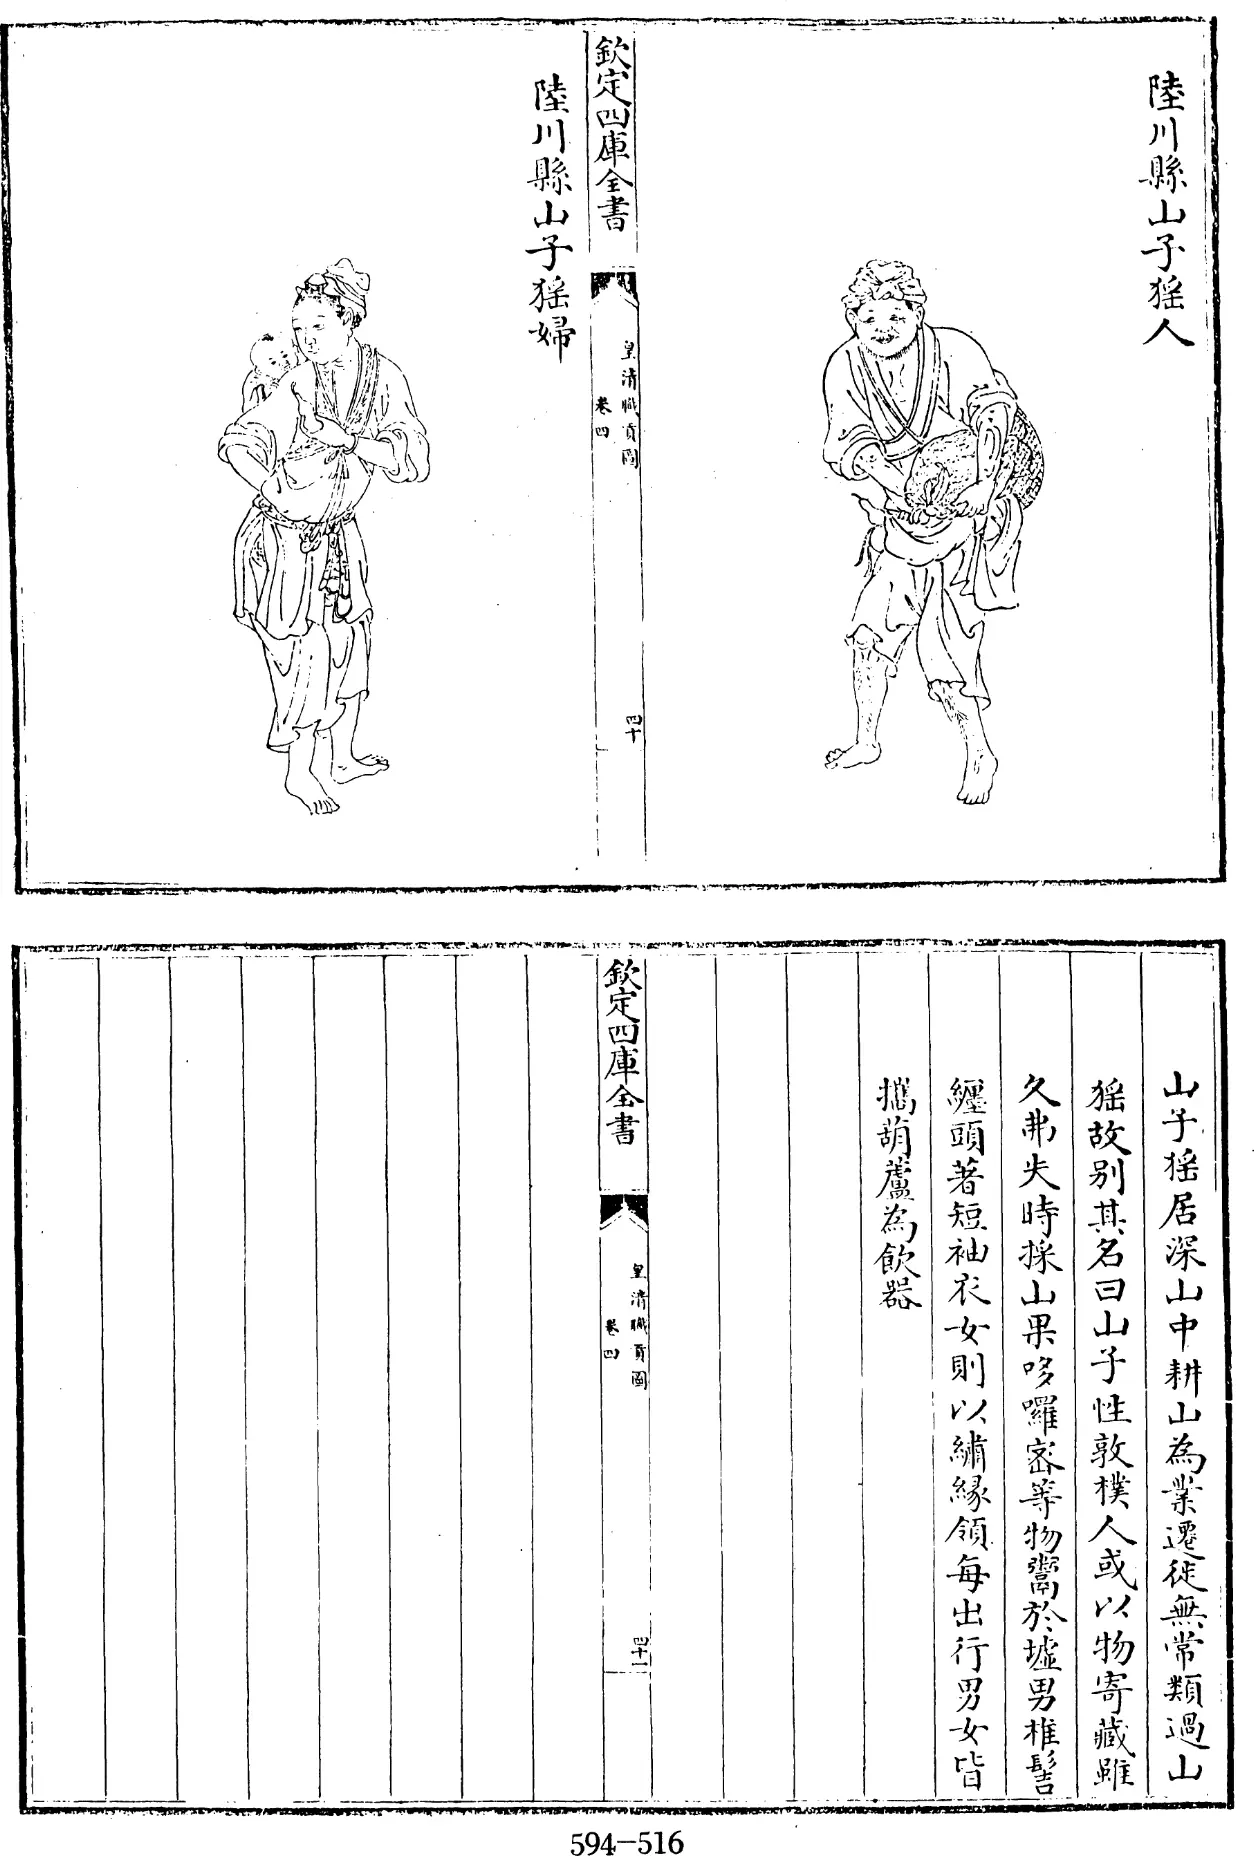 陸川縣山子猺人
欽定四庫全書
皇清職貢圖
卷四
四十
陸川縣山子猺婦
山子猺居深山中耕山為業遷徙無常類過山
猺故别其名曰山子性敦樸人或以物寄藏雖
久弗失時採山果哆囉宻等物鬻於墟男椎髻
纏頭著短袖衣女則以繡緣領每出行男女皆
攜葫蘆為飲器
欽定四庫全書
皇清職貢圖
卷四
四十一
594-516